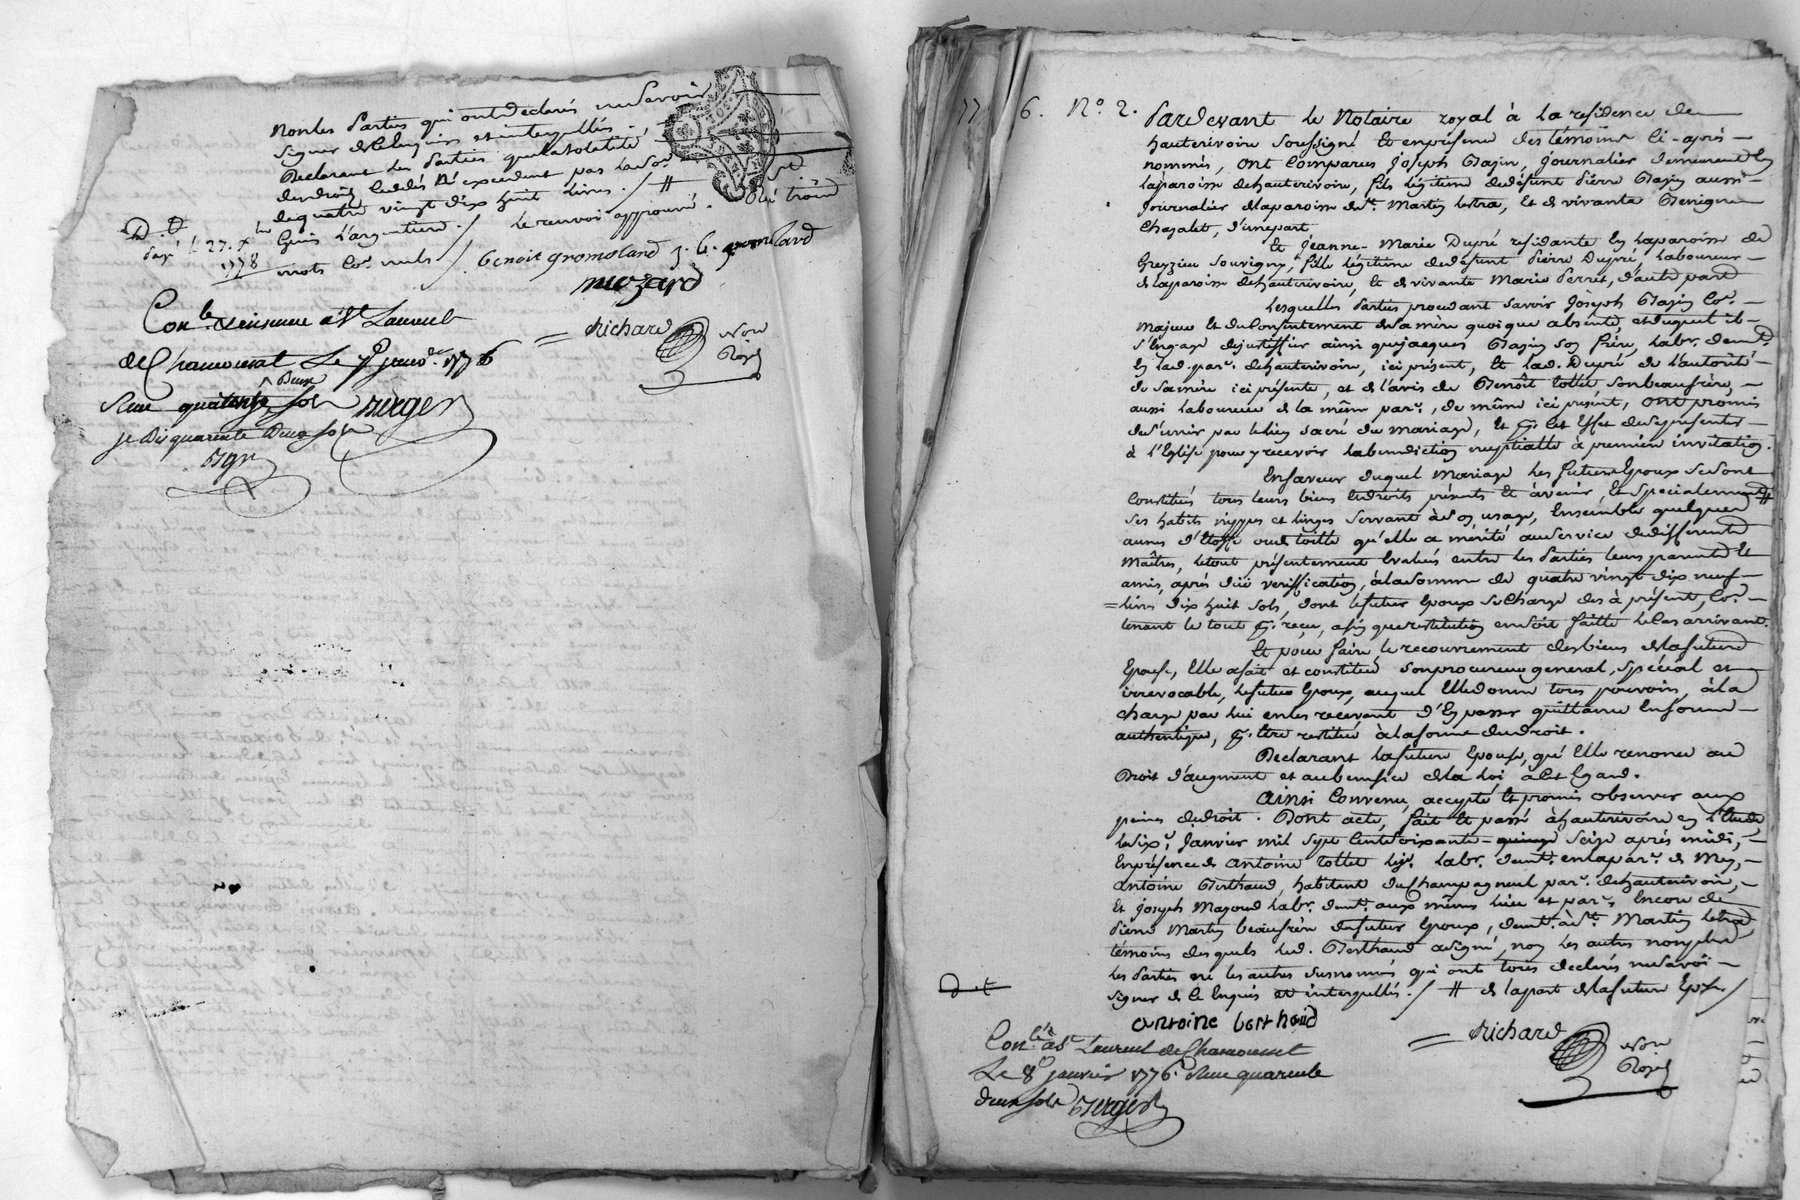 non les Parties qui ont declarés ne savoir
signer de ce enquis et interpellés.
Declarant les Parties que la totalité
des droits cedés n'excedent pas la so.e
de quatre vingt dix huit livres ./. #
l'argentiere ./ le renvoi approuvé. Raié trois
mots co.e nuls /
D. t
payé le 27. x.bre
1778
benoit gromoland j. b. gromolard
mozard
Richard Nore Royal
Con.lé à St Laurent
de Chamousset le 8 janv.r 1776
Reçu quarante deux sols berger
je dis quarante deux sols
Bgr
17 6. N.o 2. Pardevant le Notaire royal à la residence de
hauterivoire soussigné et en présence des témoins ci-après
nommés, ont comparus Joseph Bazin, journalier demeurant en
la paroisse de hauterivoire, fils légitime de défunt Pierre Bazin aussi
journalier de la paroisse de St. Martin lestra, et de vivante Benigne
Chazalet, d'une part
Et Jeanne-Marie Dupré residante en la paroisse de
Greyzieu Souvigny, fille légitime de défunt Pierre Dupré, laboureur
de la paroisse de hauterivoire, et de vivante Marie Perret, d'autre part
Lesquelles Parties procedant savoir Joseph Bazin co.e
majeur et du consentement de sa mère quoique absente, et duquel il
s'engage de justiffier ainsi que jacques Bazin son frère, lab.r dem.t
en lad. par.e de hauterivoire, ici présent, et lad. Dupré de l'autorité
de sa mère ici présente, et de l'avis de Benoît Tollet son beaufrère,
aussi laboureur de la même par.e, de même ici présent, ont promis
de s'unir par le lien sacré du mariage, et p.r cet effet de se présenter
à l'Eglise pour y recevoir la benediction nuptialle à première invitation.
En faveur duquel mariage les futurs Epoux se sont
constitués tous leurs biens et droits présents et à venir, et specialement #
ses habits nippes et linges servant à son usage, ensemble quelques
aunes d'étoffe ou de toille qu'elle a mérité au service de differents
maîtres, le tout présentement évalués entre les Parties leurs parents et
amis, après düe veriffication, à la somme de quatre vingt dix neuf
livres dix huit sols, dont le futur Epoux se charge dès à présent, co.e
tenant le tout p.r reçu, afin que restitution en soit faitte le cas arrivant.
Et pour faire le recouvrement des biens de la future
Epouse, Elle a fait et constitué son procureur general, spécial et
irrevocable, le futur Epoux, auquel Elle donne tous pouvoirs, à la
charge par lui en les recevant d'en passer quittance en forme
authentique, p.r être restitué à la forme du droit.
Declarant la future Epouse, qu'Elle renonce au
Droit d'augment et au benefice de la loi à cet Egard.
Ainsi convenu, accepté et promis observer aux
peines de droit. Dont acte, fait et passé à hauterivoire en l'Etude
le six.e Janvier mil sept cent soixante - quinze seize après midi,
En présence de Antoine Tollet lab.r dem.t en la par.e de Mey,
Antoine Berthaud, habitant du Champagneul par.e de hauterivoire,
Et Joseph Mazoud lab.r dem.t aux mêmes lieu et par.e, Encore de
Pierre Martin beaufrère du futur Epoux, dem.t à St. Martin lestra,
témoins desquels led. Berthaud a signé, non les autres non plus
les Parties ni les autres susnommés qui ont tous declarés ne savoir
signer de ce enquis et interpellés ./. # de la part de la future Epouse /
D. t
antoine berthaud
Richard Nore Royal
Con.lé à St Laurent de Chamousset
Le 8 janvier 1776. Reçu quarante
deux sols Berger